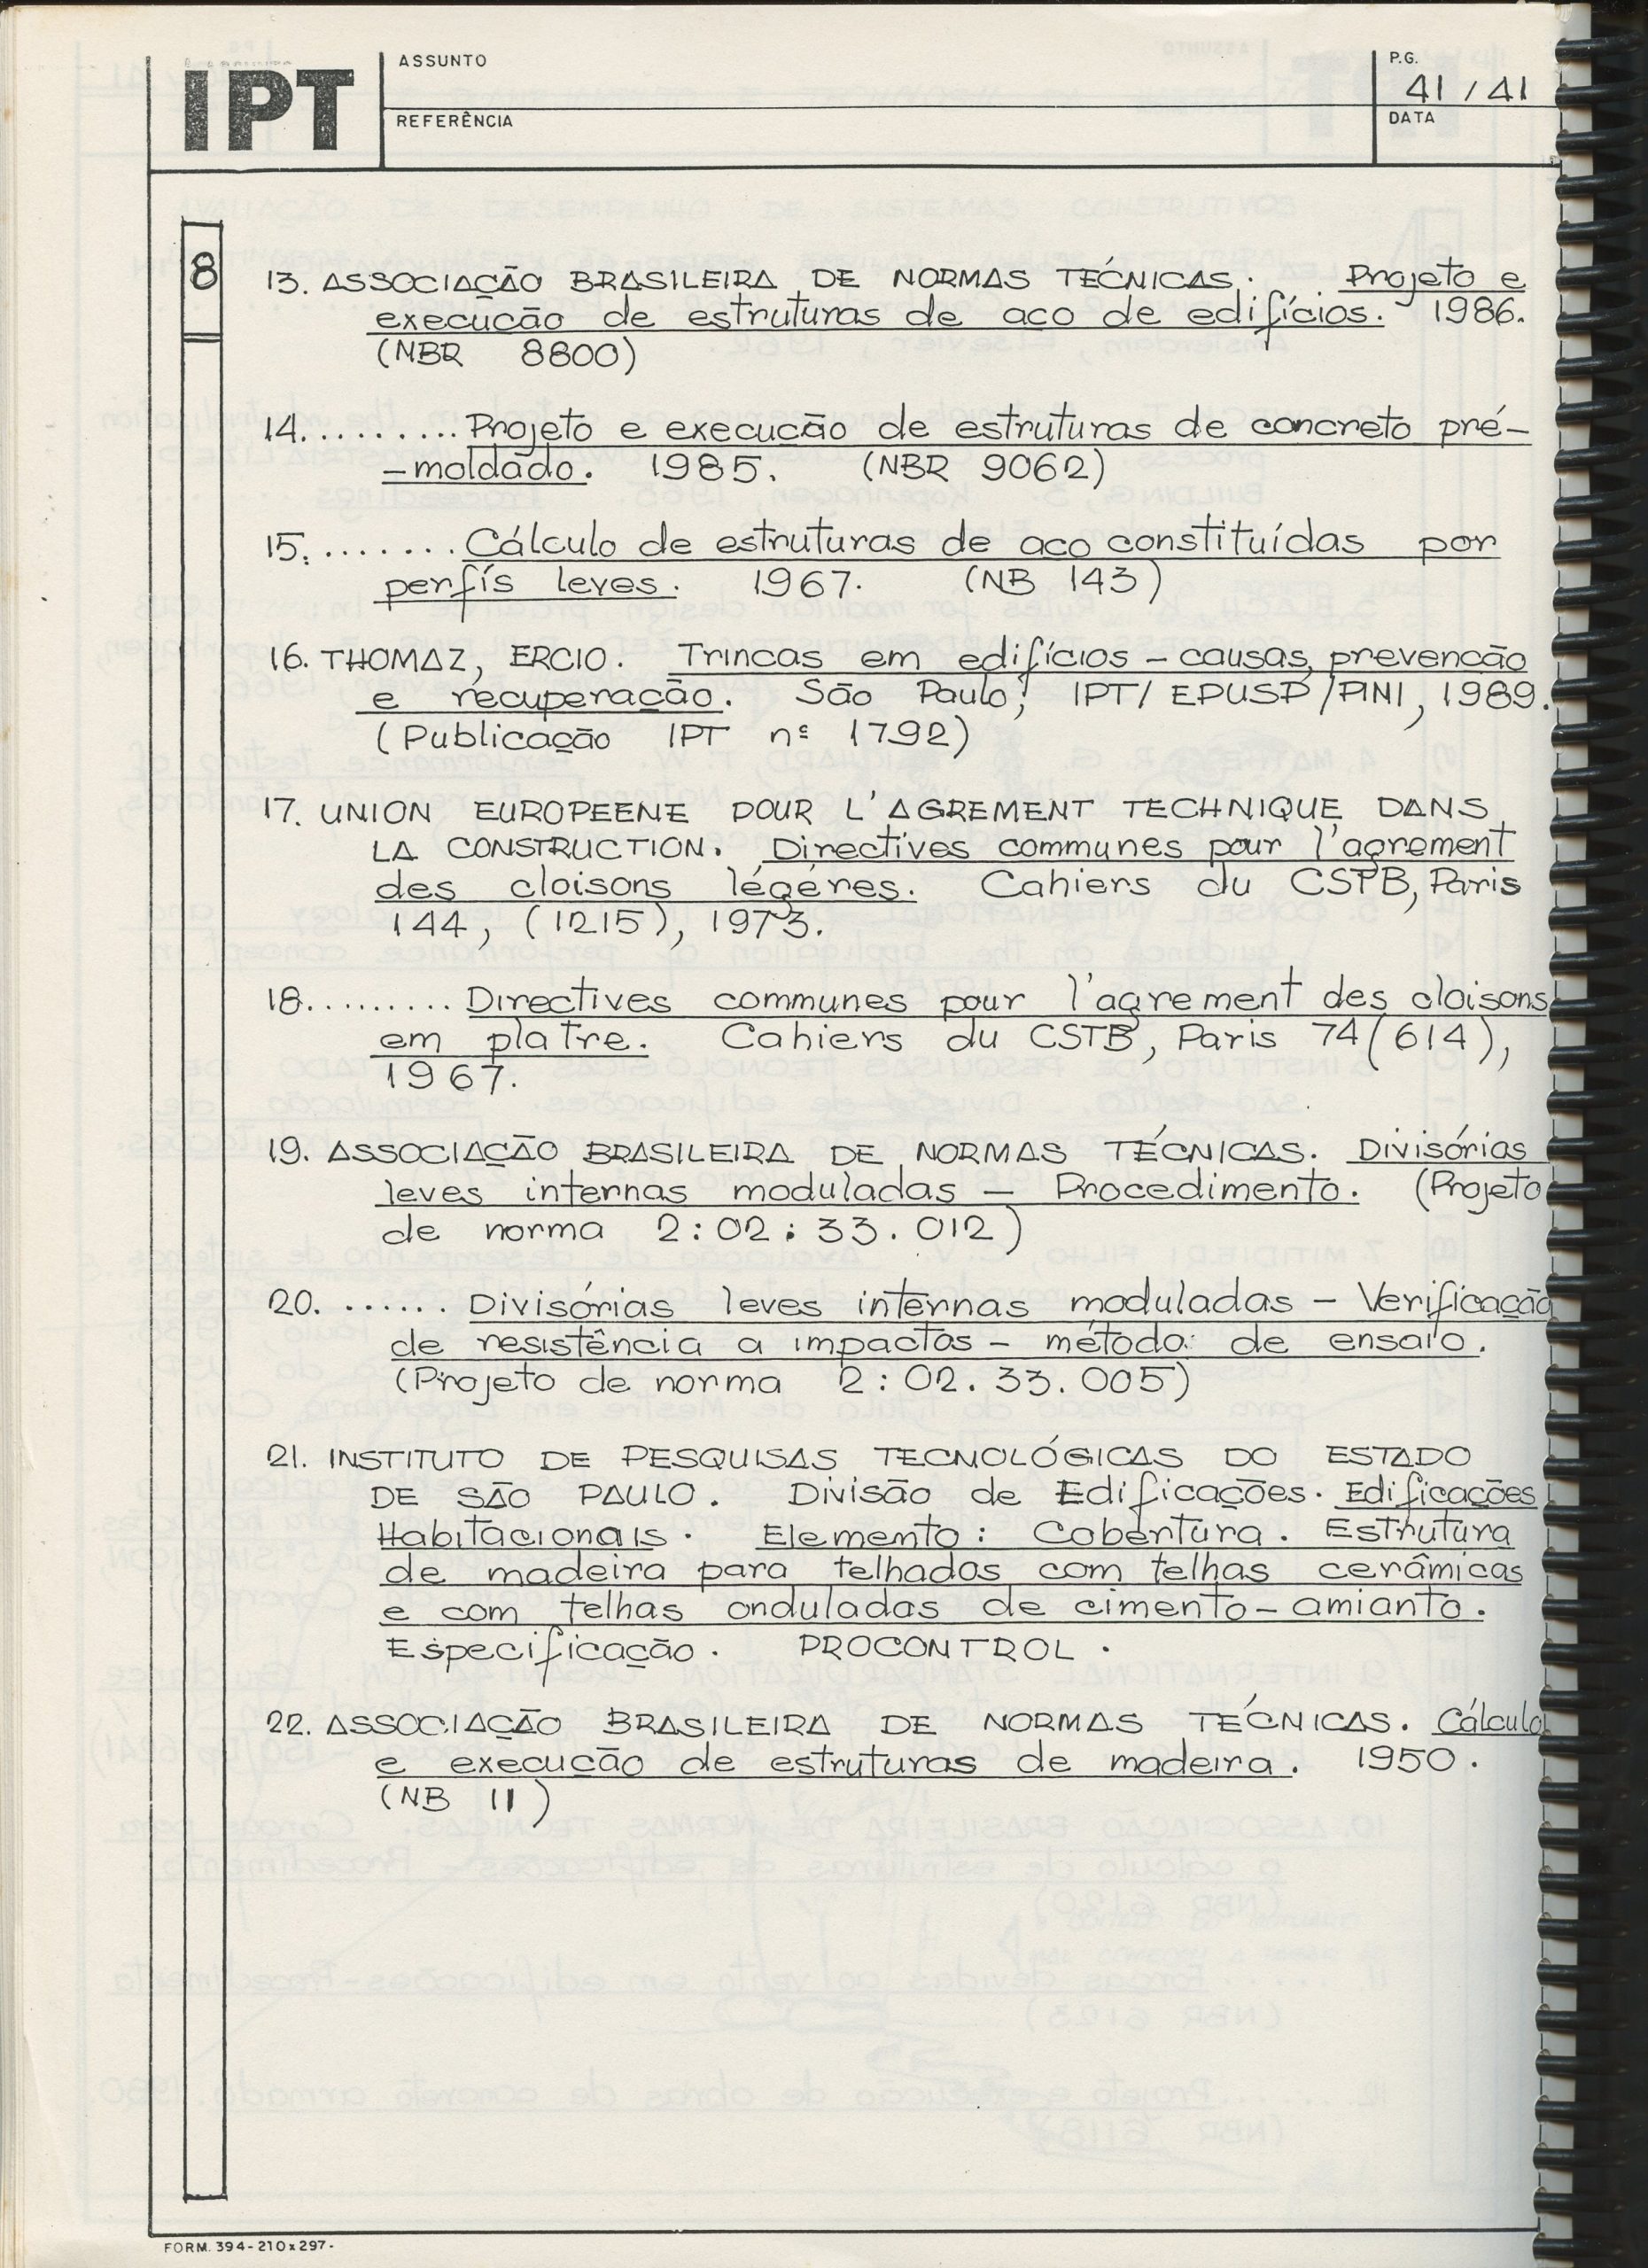 IPT
ASSUNTO
REFERÊNCIA
P.G.
41 / 41
DATA
8
13. ASSOCIAÇÃO BRASILEIRA DE NORMAS TÉCNICAS. Projeto e
execução de estruturas de aço de edifícios. 1986.
(NBR 8800)
14. ......... Projeto e execução de estruturas de concreto pré-
-moldado. 1985. (NBR 9062)
15. ....... Cálculo de estruturas de aço constituídas por
perfís leves. 1967. (NB 143)
16. THOMAZ, ERCIO. Trincas em edifícios - causas, prevenção
e recuperação. São Paulo, IPT/ EPUSP /PINI, 1989.
(Publicação IPT nº 1792)
17. UNION EUROPEENE POUR L'AGREMENT TECHNIQUE DANS
LA CONSTRUCTION. Directives communes pour l'agrement
des cloisons légères. Cahiers du CSTB, Paris
144, (1215), 1973.
18. ........ Directives communes pour l'agrement des cloisons
em platre. Cahiers du CSTB, Paris 74(614),
1967.
19. ASSOCIAÇÃO BRASILEIRA DE NORMAS TÉCNICAS. Divisórias
leves internas moduladas - Procedimento. (Projeto
de norma 2:02:33.012)
20. ...... Divisórias leves internas moduladas - Verificação
de resistência a impactos - método de ensaio.
(Projeto de norma 2:02.33.005)
21. INSTITUTO DE PESQUISAS TECNOLÓGICAS DO ESTADO
DE SÃO PAULO. Divisão de Edificações. Edificações
Habitacionais. Elemento: Cobertura. Estrutura
de madeira para telhados com telhas cerâmicas
e com telhas onduladas de cimento-amianto.
Especificação. PROCONTROL.
22. ASSOCIAÇÃO BRASILEIRA DE NORMAS TÉCNICAS. Cálculo
e execução de estruturas de madeira. 1950.
(NB 11)
FORM. 394-210x297-